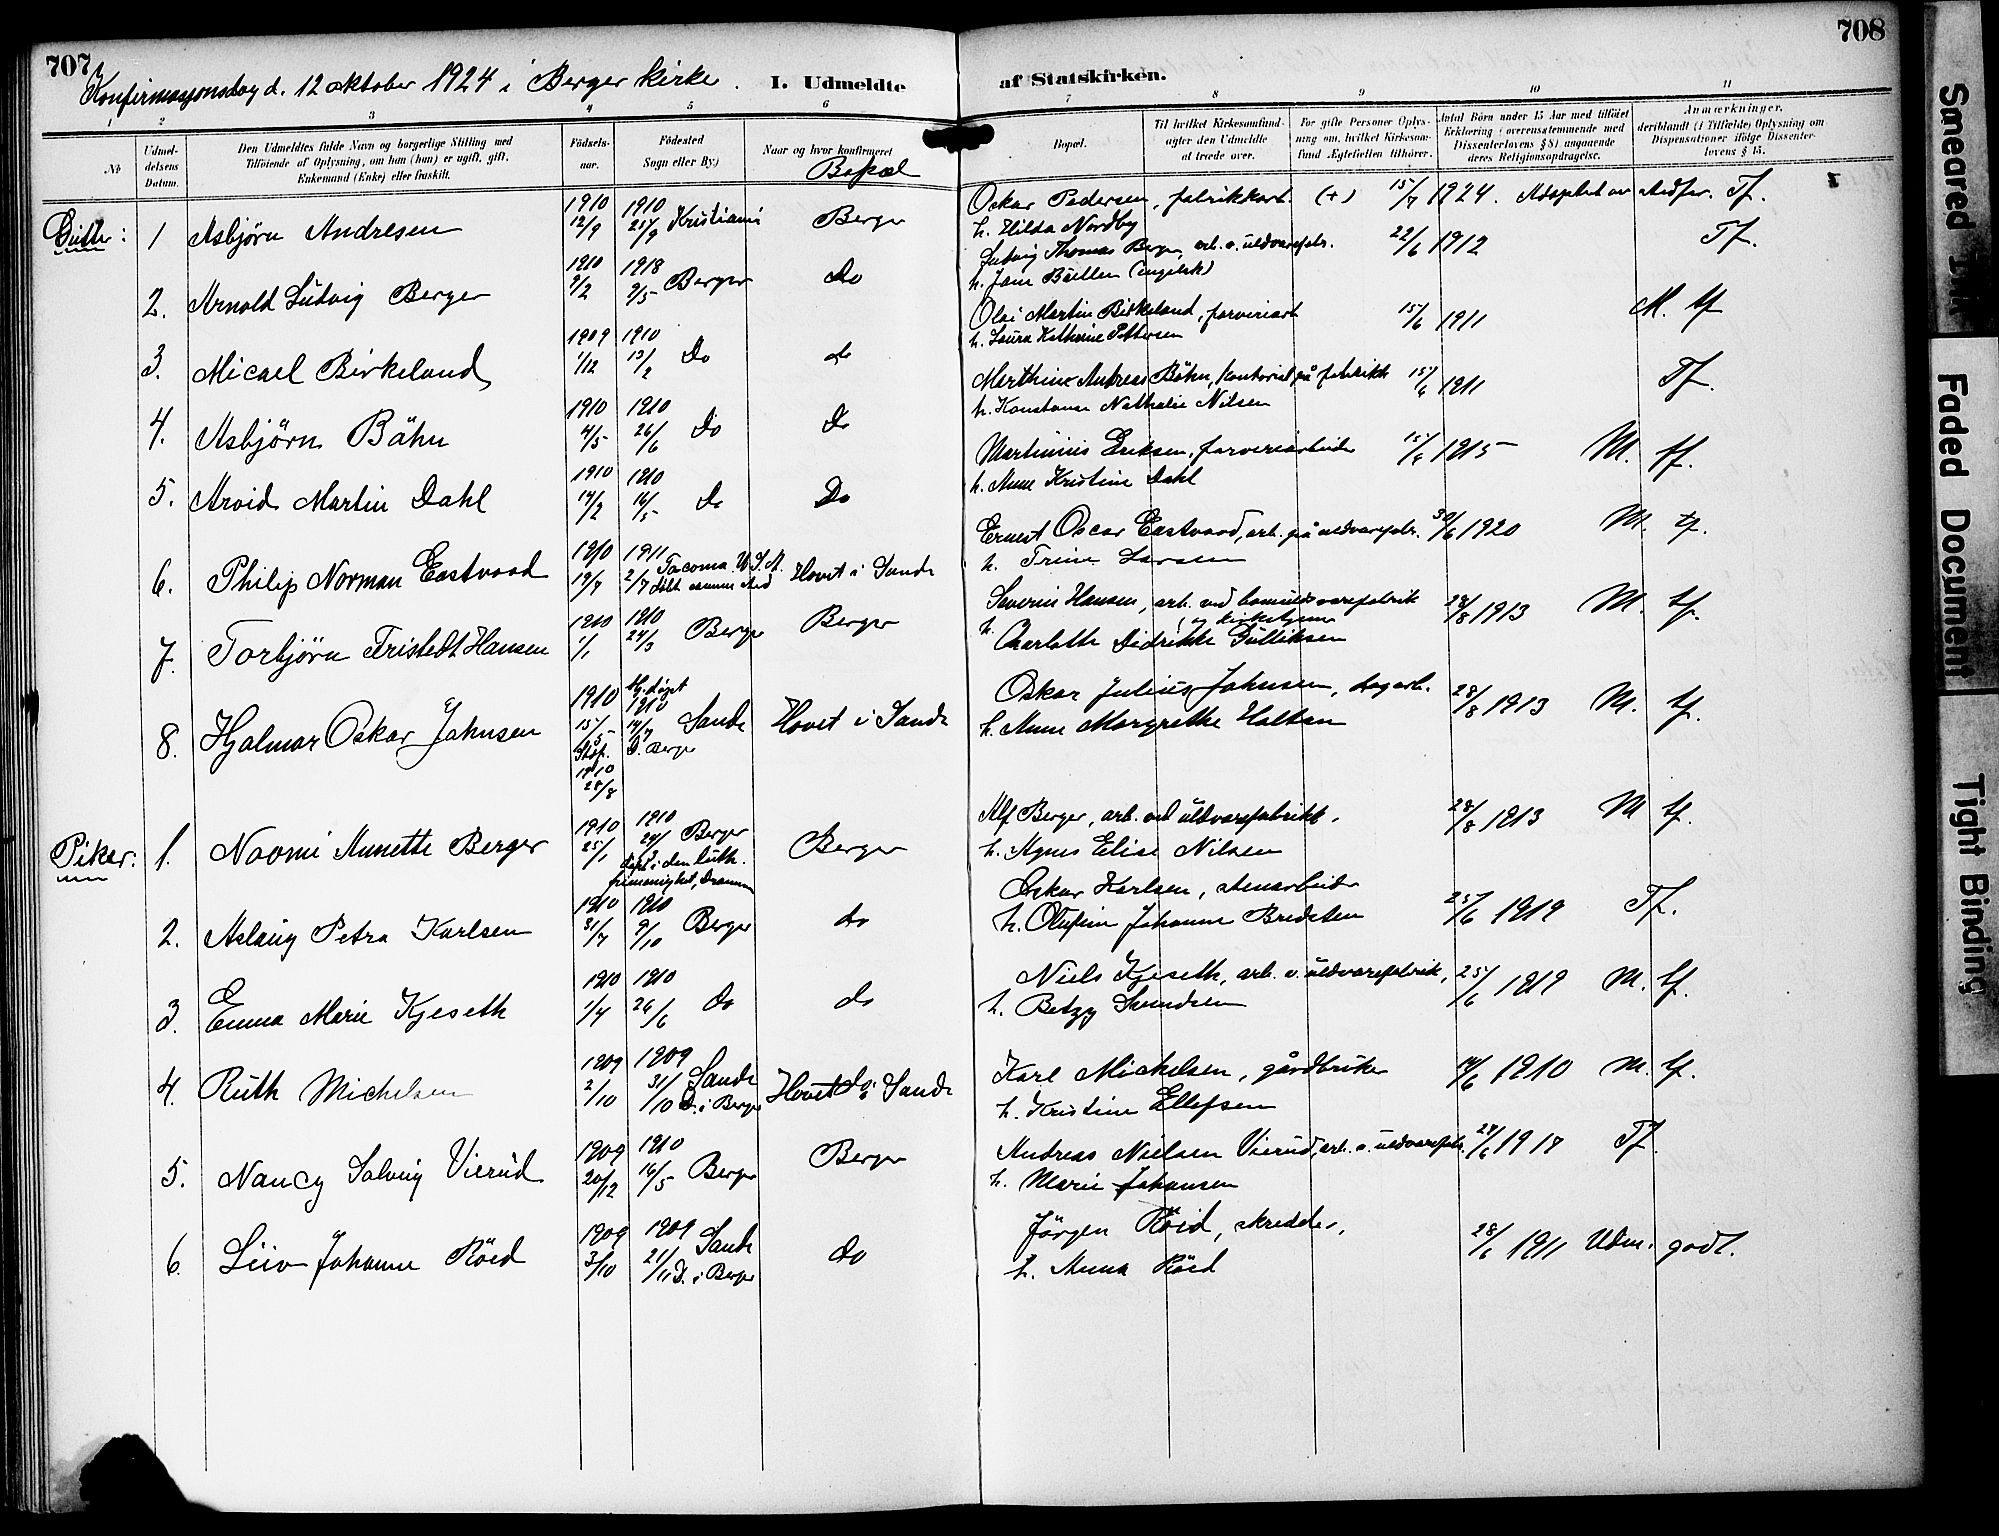 707
708
Konfirmasjonsdag d. 12 oktober 1924 i Berger kirke.
I. Udmeldte
af Statskirken.
1 2 3 4 5 6
7 8 9 10 11
No
Udmel-
delsens
Datum.
Den Udmeldtes fulde Navn og borgerlige Stilling med
Tilföiende af Oplysning, om han (hun) er ugift, gift,
Enkemand (Enke) eller fraskilt.
Födsels-
aar.
Födested
Sogn eller By.)
Naar og hvor konfirmeret
Bopæl
Bopæl.
Til hvilket Kirkesamfund
agter den Udmeldte
at træde over.
For gifte Personer Oplys-
ning om, hvilket Kirkesam-
fund Ægtefællen tilhører.
Antal Börn under 15 Aar med tilföiet
Erklæring (overensstemmende med
Dissenterlovens § 8) angaaende
deres Religionsopdragelse.
Anmærkninger,
deriblandt (i Tilfælde) Oplysning om
Dispensationer ifölge Dissenter-
lovens § 15.
Gutter:
1 Asbjørn Andresen 1910 12/9 1910 25/9 Kristiania Berger
Oskar Pedersen, fabrikkarb. (+) 15/7 1924. Adoptert av Tf.
h. Hilda Nordby
2. Arnold Ludvig Berger 1910 9/2 1918 9/5 Berger Do
Ludvig Thomas Berger, arb. v. uldvarefabr. 22/6 1912 Tf.
h. Jane (engelsk)
3. Micael Birkeland 1909 1/12 1910 13/2 Do do
Olai Martin Birkeland, farveriarb 15/6 1911 M. tf
h. Laura Kathrine Pettersen
4. Asbjørn Båhn 1910 4/5 1910 26/6 Do Do
Marthin Andreas Båhn, kontorist på fabrikk 15/6 1911 Tf.
h. Konstanse Nathalie Nilsen
5. Arvid Martin Dahl 1910 14/2 1910 16/5 Do Do
Martinius Eriksen, farveriarbeider 15/6 1915 M. tf.
h. Anne Kristine Dahl
6. Philip Norman Eastvood 1910 19/7 1911 2/7 Tacoma U.S.A. døbt samme sted Hovet i Sande
Ernest Oscar Eastvood, arb. på uldvarefabr. 30/6 1920 M. tf.
h. Trine Larsen
7. Torbjørn Fristedt Hansen 1910 1/1 1910 24/3 Berger Berger
Severin Hansen, arb. ved bomuldsvarefabrik 28/8 1913 M. tf.
(og kirketjener
h. Charlotte Didrikke Gulliksen
8. Hjalmar Oskar Johnsen 1910 15/5 Staf. 1910 28/8 Hj.døpt 1910 14/7 Sande D. Berger Hovet i Sande
Oskar Julius Johnsen, dagarb. 28/8 1913 M. tf.
h. Anne Margrethe Holtan
Piker:
1. Naomi Annette Berger 1910 25/1 1910 Berger døpt i den luth. frimenighet, Drammen Berger
Alf Berger, arb. ved uldvarefabrikk. 28/8 1913 M tf.
h. Agnes Elise Nilsen
2. Aslaug Petra Karlsen 1910 31/7 1910 9/10 Berger do
Oskar Karlsen, stenarbeider 25/6 1919 Tf.
h. Olufine Johanne Bredsten
3. Emma Marie Kjeseth 1910 1/4 1910 26/6 do do
Niels Kjeseth, arb. v. uldvarefabrik, 25/6 1919 M. tf.
h. Betzy Svendsen
4. Ruth Michelsen 1909 2/10 1909 31/10 Sande D. i Berger Hovet i Sande
Karl Mickelsen, gårdbruker 19/6 1910 M. tf.
h. Kristine Ellefsen
5. Nancy Solveig Vierud 1909 20/12 1910 16/5 Berger Berger
Andreas Nielsen Vierud, arb. v. uldvarefabr. 24/6 1917 Tf.
h. Marie Johansen
6. Liv Johanne Röed 1909 3/10 1909 21/11 Sande D. i Berger do
Jørgen Röed, skredder, 28/6 1911 Udm. godt.
h. Anna Röed
Smeared Ink
Faded Document
Tight Binding